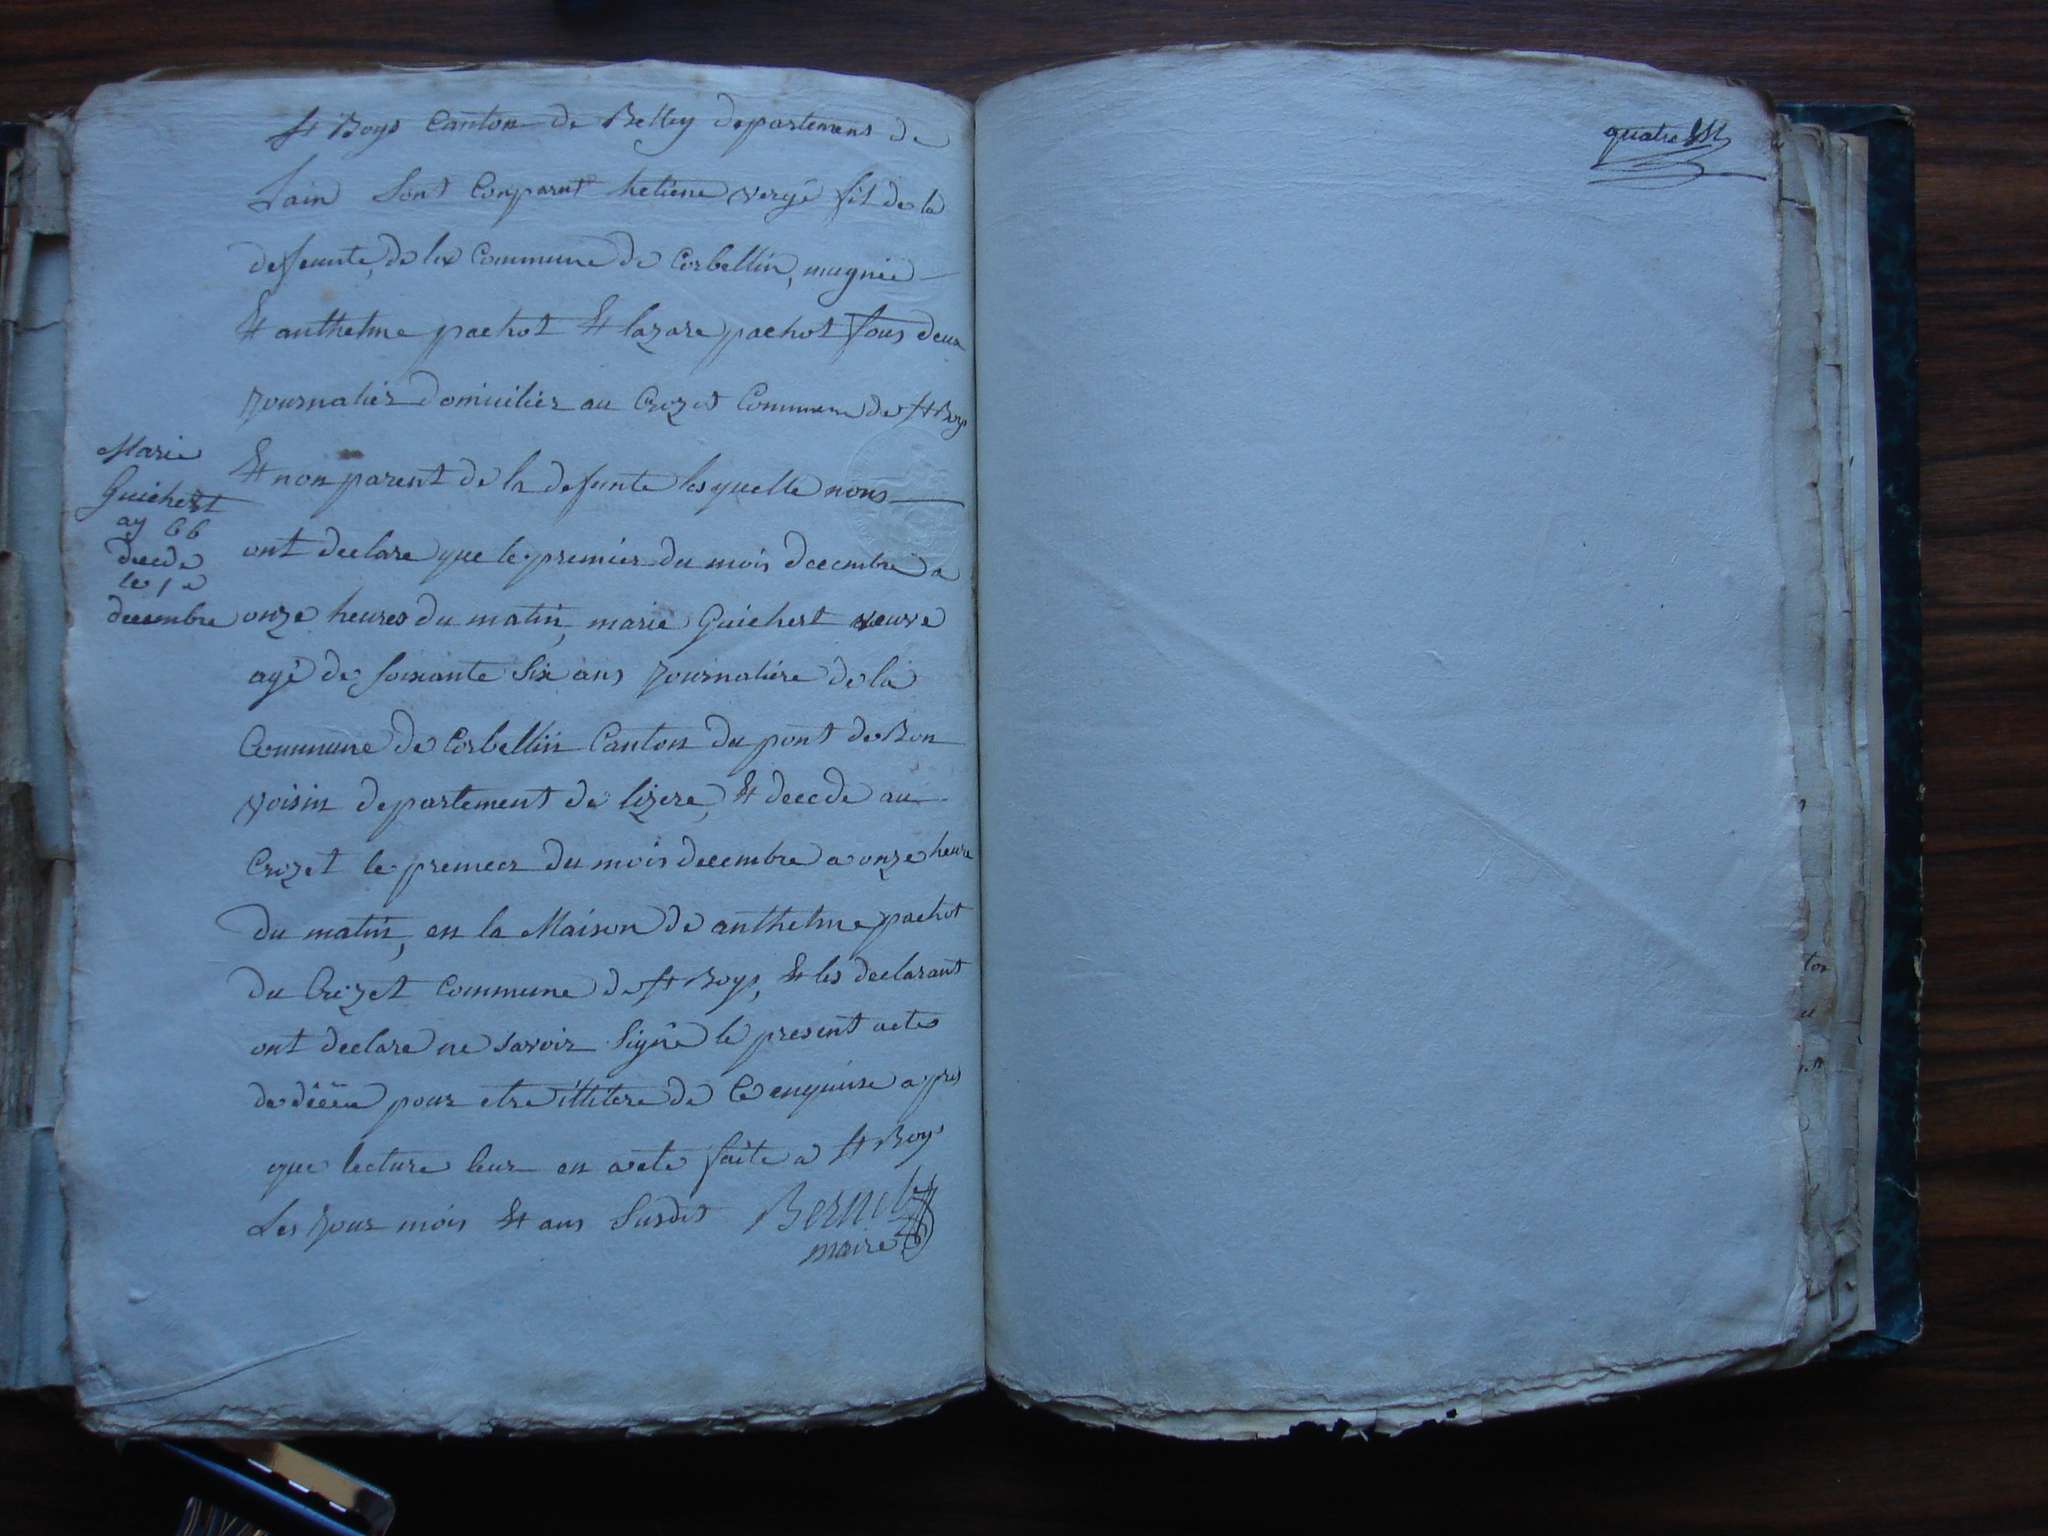 St Boys Canton de Belley departemens de
Lain sont Comparut hetiene vergé fil de la
deffeunte, de la Commune de Corbellin, mugnié
Et anthelme pachot Et lazare pachot tous deux
journaliér domiciliér au Crozet Commune de St Boys
Et non parent de la defunte lesquelle nous
ont declare que le premier du mois decembre a
onze heures du matin, marie Guichert veuve
agé de soixante six ans journaliére de la
Commune de Corbellin Canton du pont de Bon
voisin departement de lizere, Et decede au
Crozet le premeer du mois decembre a onze heure
du matin, en la Maison de anthelme pachot
du Crozet Commune de St Boys, Et les declarant
ont declare ne savoir Signé le present acte
de pour etre illitere de Ce enquise apres
que lecture leur en aete faite a St Boys
Les jour mois Et ans Susdit Bernet
maire
Marie
Guichert
ag 66
decede
le 1 e
decembre
quatre